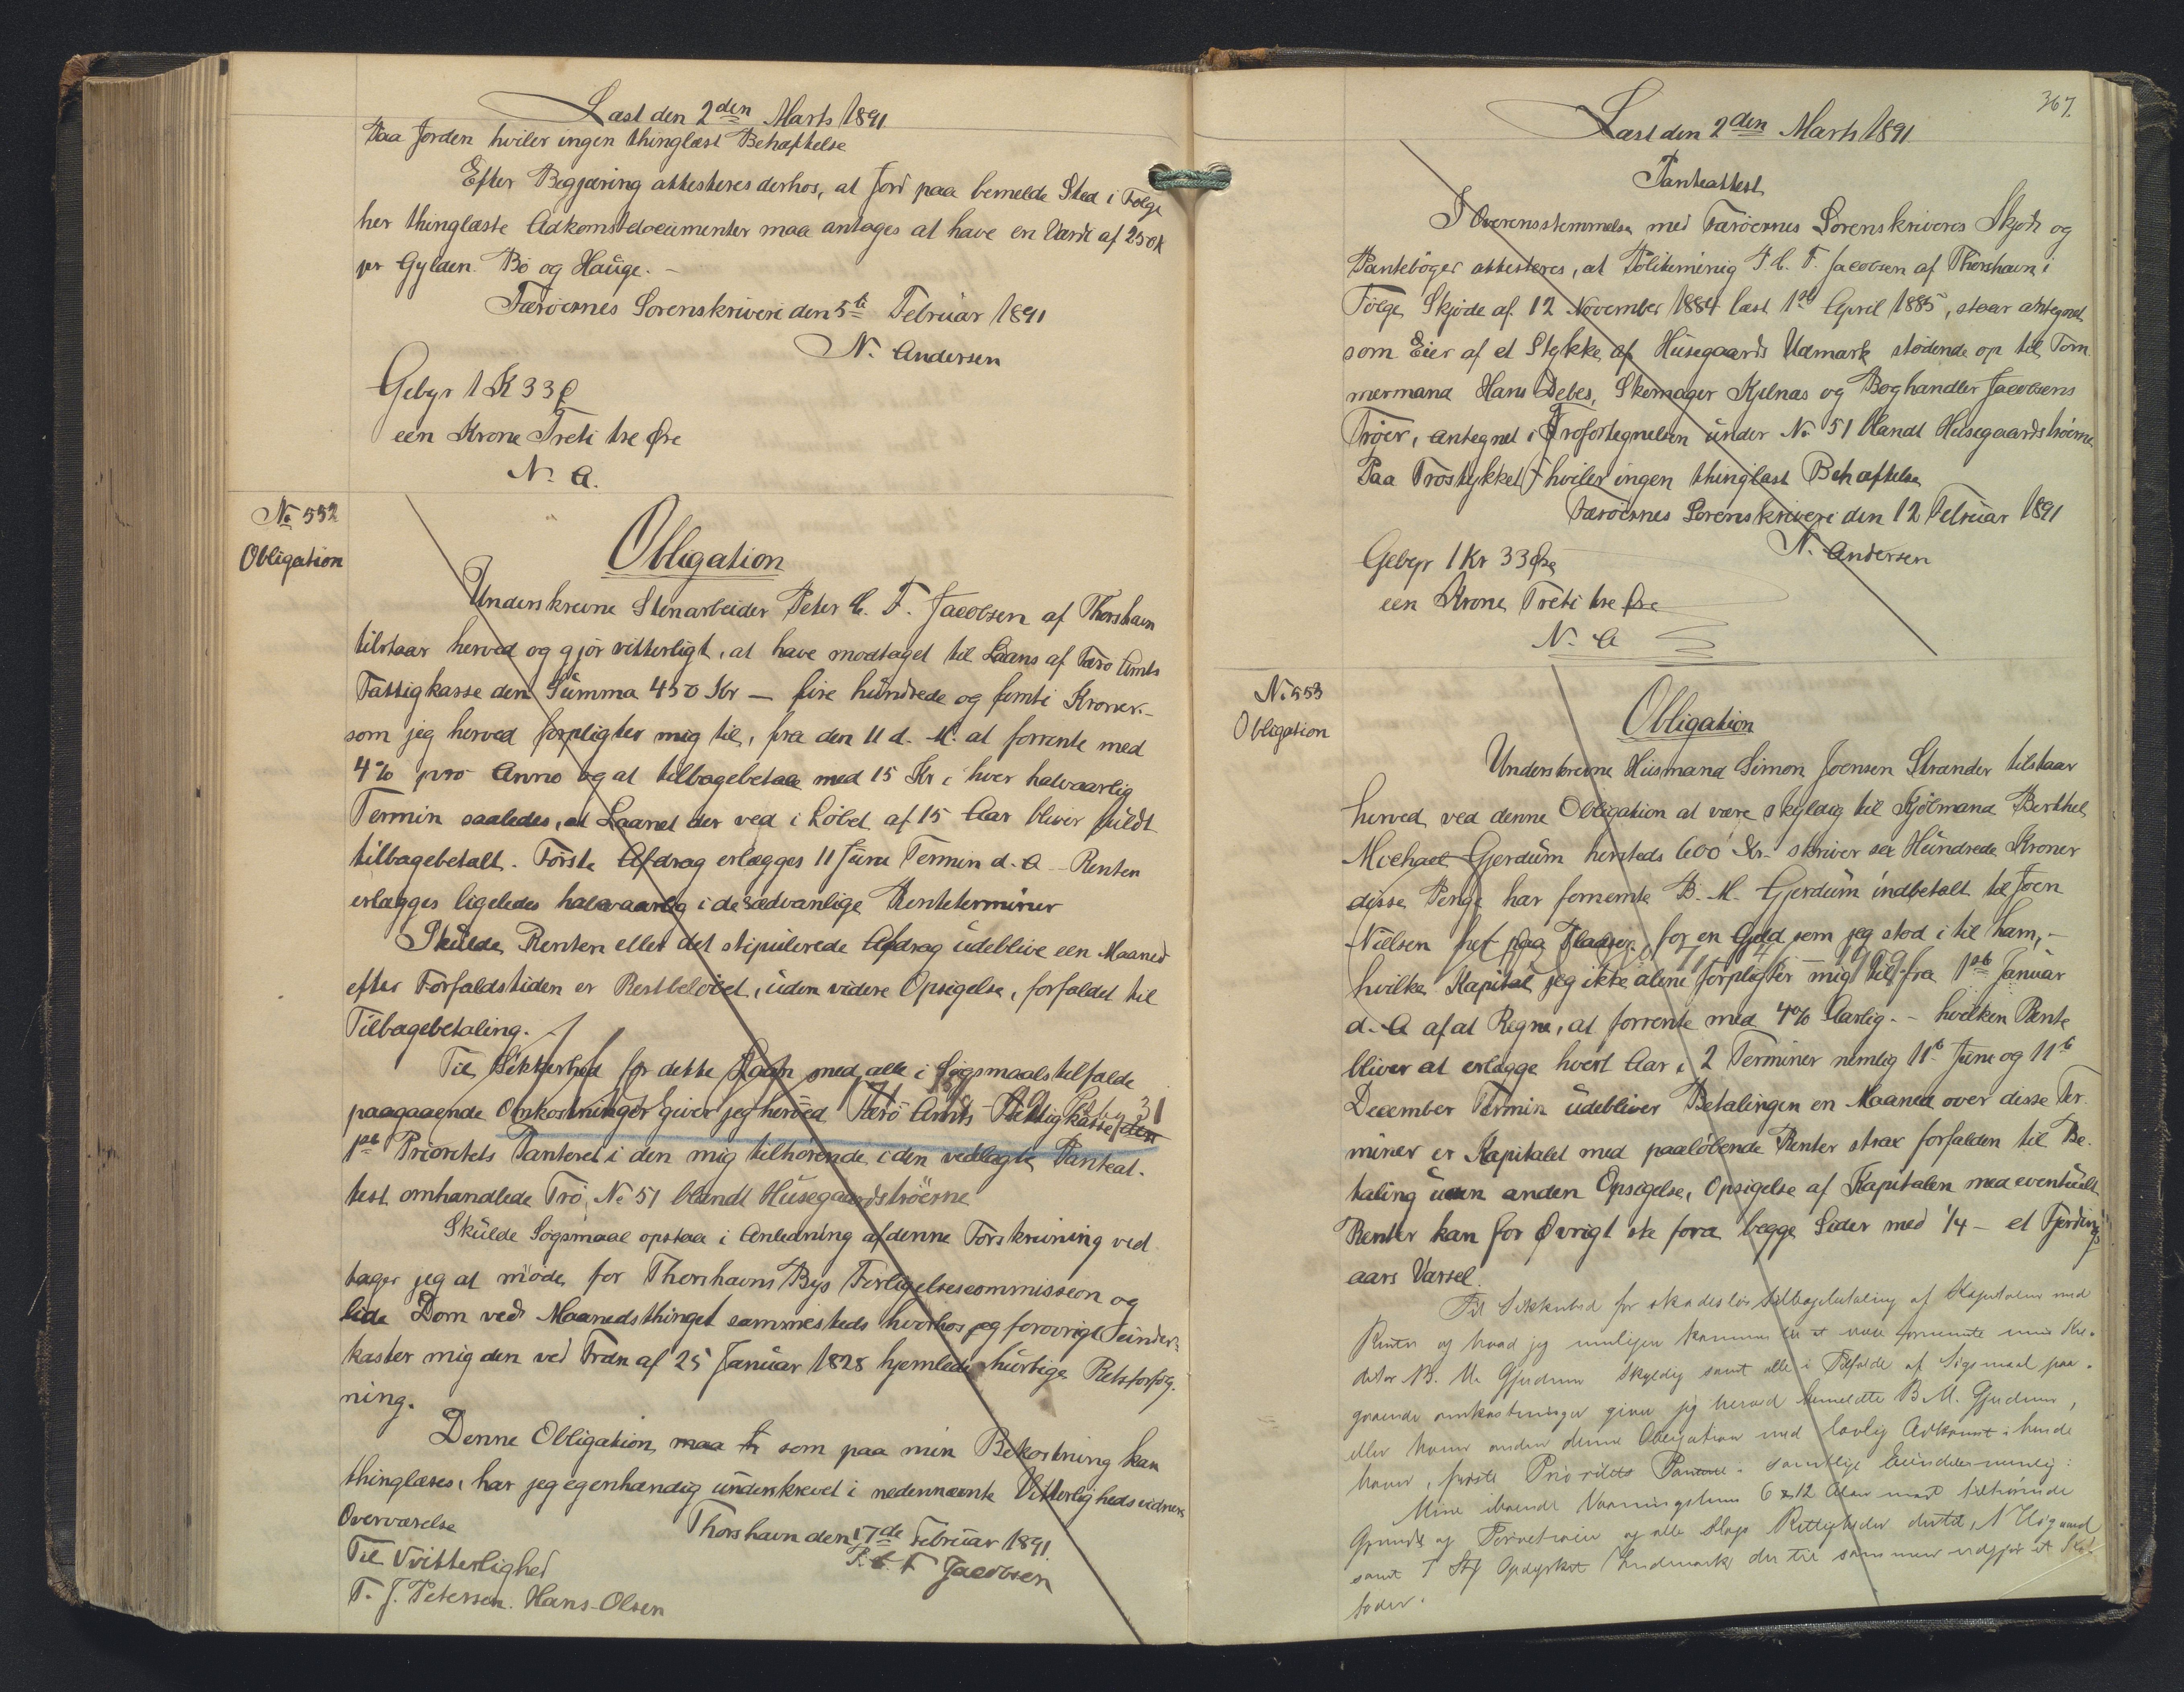 Læst den 2den Marts 1891.
Paa Jorden hviler ingen thinglæst Behæftelse
Efter Begjæring attesteres derhos, at Jord paa bemeldte Sted i Følge
her thinglæste Adkomstdocumenter maa antages at have en Værdi af 250 K
pr Gylden. Bø og Hauge. -
Færøernes Sorenskriveri den 5te Februar 1891
N. Andersen
Gebyr 1 K 33 Ø
een Krone Treti tre Øre
N. A.
No 552
Obligation
Obligation
Underskrevne Stenarbeider Peter C. F. Jacobsen af Thorshavn
tilstaar herved og gjør vitterligt, at have modtaget til Laans af Færø Amts
Fattigkasse den Summa 450 Kr — fire hundrede og femti Kroner. -
som jeg herved forpligter mig til, fra den 11 d. M. at forrente med
4% pro Anno og at tilbagebetale med 15 Kr i hver halvaarlig
Termin saaledes, at Laanet der ved i Løbet af 15 Aar bliver fuldt
tilbagebetalt. Første Afdrag erlægges 11 Juni Termin d. A - Renten
erlægges ligeledes halvaarlig i de sædvanlige Renteterminer
Skulde Renten eller det stipulerede Afdrag udeblive een Maaned
efter Forfaldstiden er Restbeløbet, uden videre Opsigelse, forfaldet til
Tilbagebetaling.
Til Sikkerhed for dette Laan med alle i Søgsmaalstilfælde
paagaaende Omkostninger giver jeg herved Færø Amts Fattigkasse den
1ste Prioritets Panteret i den mig tilhørende i den vedlagte Panteat-
test omhandlede Trø, No 51 blandt Husegaardstrøerne
Skulde Søgsmaal opstaa i Anledning af denne Forskrivning ved
tager jeg at møde for Thorshavns Bys Forligelsescommission og
lide Dom ved Maanedsthinget sammesteds hvorhos jeg forøvrigt under-
kaster mig den ved Frdn af 25 Januar 1828 hjemlede hurtige Retsforføg-
ning.
Denne Obligation, maa som paa min Bekostning kan
thinglæses, har jeg egenhændig underskrevet i nedennævnte Vitterlighedsvidners
Overværelse
Thorshavn den 17de Februar 1891.
P. C. F Jacobsen
Til Vitterlighed
F. J. Petersen. Hans Olsen
367.
Læst den 2den Marts 1891.
Panteattest
I Overensstemmelse med Færøernes Sorenskriveres Skjøde og
Pantebøger attesteres, at Politimenig P. C. F. Jacobsen af Thorshavn i
Følge Skjøde af 12 November 1884 læst 1ste April 1885, staar antegnet
som Eier af et Stykke af Husegaards Udmark stødende op til Tøm
mermand Hans Debes, Skomager Kjelnæs og Boghandler Jacobsens
Trøer, antegnet i Trøfortegnelsen under No 51 blandt Husegaardstrøerne
Paa Trøstykket hviler ingen thinglæst Behæftelse
Færøernes Sorenskriveri den 12 Februar 1891
N. Andersen
Gebyr 1 Kr 33 Øre
een Krone Treti tre Øre
N. A
No 553
Obligation
Obligation
Underskrevne Husmand Simon Joensen Strander tilstaar
herved ved denne Obligation at være skyldig til Kjølmand Berthel
Michael Gjerdum hersteds 600 Kr. skriver sex Hundrede Kroner
disse Penge har fornemte B. M. Gjerdum indbetalt til Joen
Nielsen paa for en Gjeld som jeg stod i til ham, -
hvilke Kapital jeg ikke alene forpligter mig til fra 1ste Januar
d. A af at Regne, at forrente med 4% Aarlig. - hvilken Rente
bliver at erlægge hvert Aar i 2 Terminer nemlig 11te Juni og 11te
December Termin udebliver Betalingen en Maaned over disse Ter-
miner er Kapitalet med paaløbende Renter strax forfalden til Be-
taling uden anden Opsigelse, Opsigelse af Kapitalen med eventuelt
Renter kan for Øvrigt ske fora begge Sider med 1/4 - et Fjerdings
aars Varsel.
Til Sikkerhed for skadesløs tilbagebetaling af Kapitalen med
Renter og hvad jeg muligen kommer til at være fornemte min Kre-
ditor B. M. Gjerdum skyldig samt alle i Tilfælde af Søgsmaal paa-
gaaende omkostninger giver jeg herved bemeldte B. M. Gjerdum,
eller hvem anden denne Obligation med lovlig Adkomst i hænde
haver, første Prioritets Panteret i samtlige Eiendele nemlig:
Mine iboende Vaaningshuus 6 x 12 Alen med tilhørende
Grund og og alle Slags Rettigheder dertil,
samt Opdyrket Indmark der til sammen udgjør et